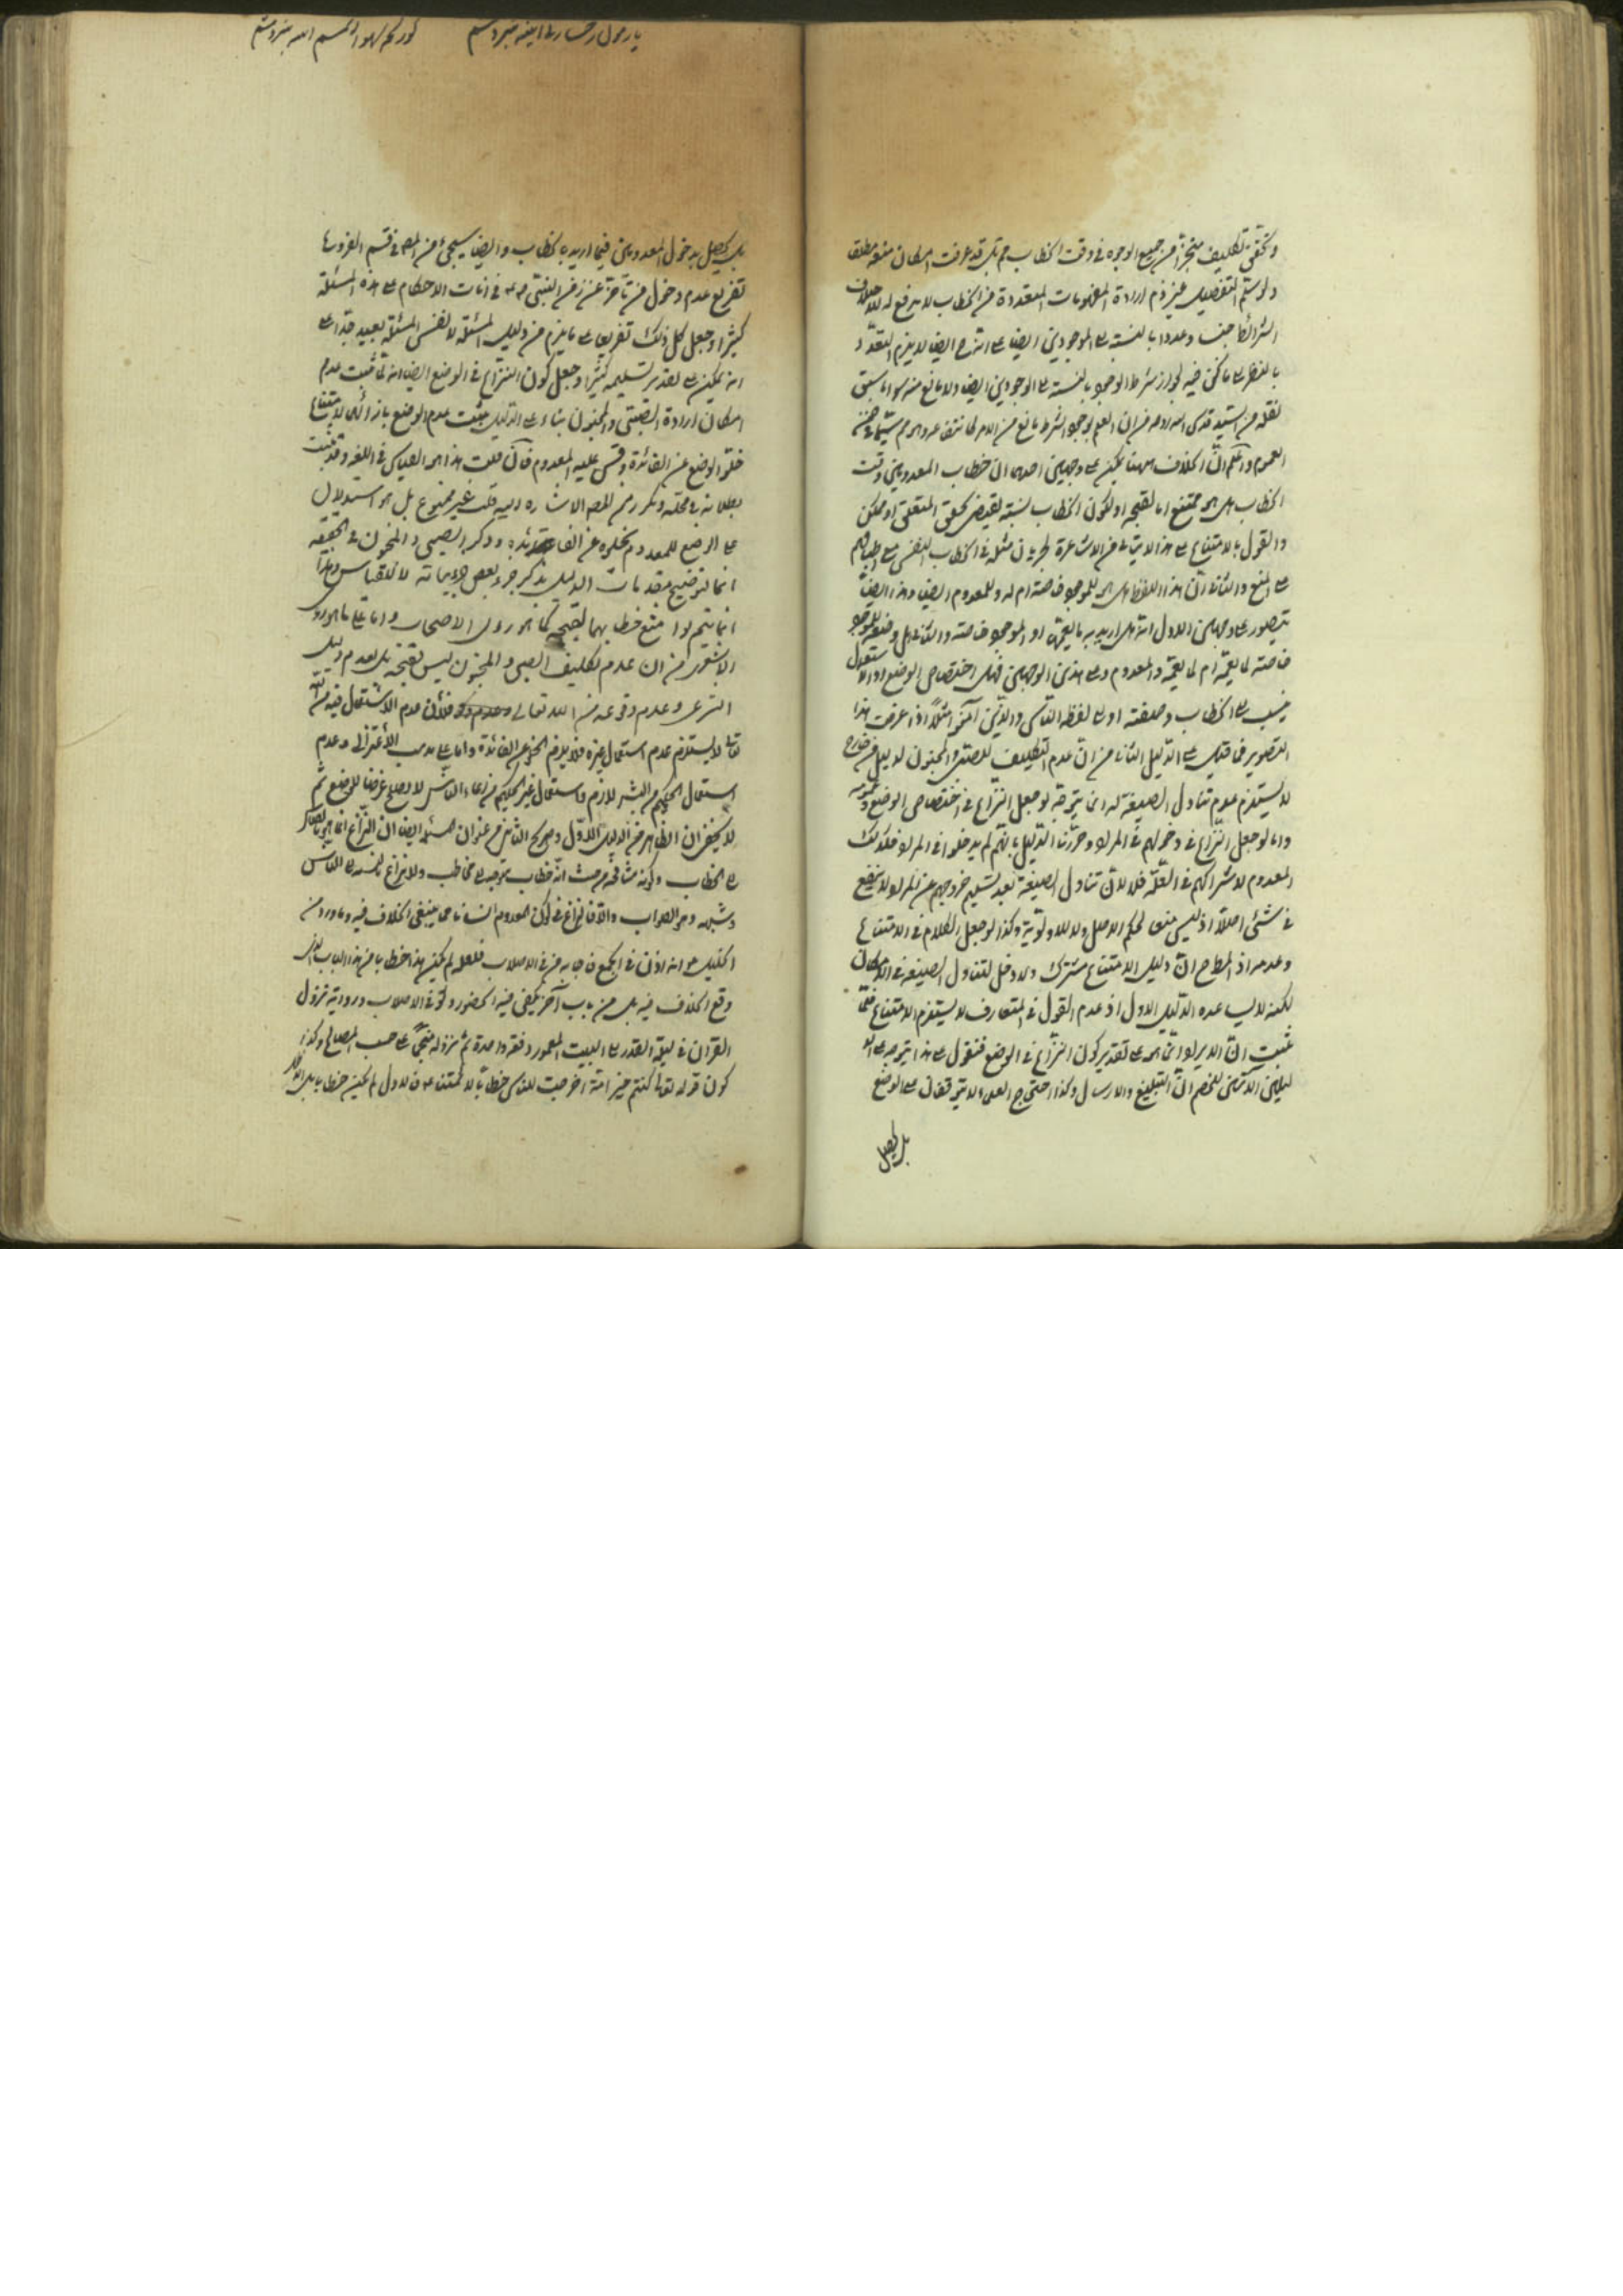 وتحقق تكليف منجزاً من جميع الوجوه في وقت الخطاب ثم بل قد عرفت امكان منعه مطلقا
ولو سلم التفصيل فيلزم ارادة المفهومات المتعددة من الخطاب لا يرفع له للاختلاف
الشرائط جنسا وعددا بالنسبة الى الموجودين ايضا على انه ايضا لا يلزم التعدد
بالنظر الى ما نحن فيه لجواز شرط الوجود بالنسبة الى الموجودين ايضا ولا مانع منه سوى ما سبق
نقله من السيد قدس الله روحه من ان العلم بوجود الشرط مانع من الامر
العموم واعلم ان الخلاف ههنا يمكن على وجهين احدهما ان خطاب المعدومين وقت
الخطاب هل هو ممتنع اما لقبحه او لكون الخطاب نسبة تقتضي تحقق المتعلق او ممكن
والقول بالامتناع على هذا لا يتأتى من الاشاعرة لجريان مثله في الخطاب النفسي مع اطباقهم
على المنع والثاني ان هذا اللفظ هل هو للموجود خاصة ام له وللمعدوم ايضا وهذا ايضا
يتصور على وجهين الاول انه هل اريد به ما يعمه او الموجود خاصة والثاني هل وضعه للموجود
خاصة لما يعمه ام لما يعمه والمعدوم وعلى هذين الوجهين فهل اختصاص الوضع او الاستعمال
الخطاب وصيغته او لفظة الناس والذين آمنوا مثلا اذا عرفت هذا
التصوير فما قيل على الدليل الثاني من ان عدم التكليف للصبي والمجنون لدليل من خارج
لا يستلزم عدم تناول الصيغة له انما يتوجه لو جعل النزاع في اختصاص الوضع وعمومه
واما لو جعل النزاع في دخولهم في المراد وحررنا الدليل بانهم لم يدخلوا في المراد فكذلك
المعدوم لاشتراكهم في العلة فلا لان تناول الصيغة بعد تسليم خروجهم عن المراد لا ينفع
في شيء اصلا اذ ليس منعا لحكم الاصل ولا للاولوية وكذا لو جعل الكلام في الامتناع
وعدمه اذ المطرح ان دليل الامتناع مشترك ولا دخل لتناول الصيغة في الامكان
لكنه لا يساعده الدليل الاول اذ عدم القول في المتعارف لا يستلزم الامتناع
تثبت ان الايراد انما هو على تقدير كون النزاع في الوضع فنقول على هذا يتوجه على
الدليلين الآتيين للخصم ان التبليغ والارسال وكذا احتجاج العلماء لا يتوقفان على الوضع
بل يحصل
بل يحصل بدخول المعدومين فيما اريد بالخطاب وايضا سيجيء من المص في قسم الفروع
تفريع عدم دخول من تأخر عن زمن النبي في اثبات الاحكام على هذه المسئلة
كثيرا وجعل كل ذلك تفريعا على ما يلزم من دليل المسئلة لا نفس المسئلة بعيد جدا على
انه يمكن على تقدير تسليمه كثيرا وجعل كون النزاع في الوضع ايضا انه لما ثبت عدم
امكان ارادة الصبي والمجنون بناء على الدليل يثبت عدم الوضع بازائهما لامتناع
خلو الوضع عن الفائدة وقس عليه المعدوم فان قلت هذا هو القياس في اللغة وقد ثبت
بطلانه في محله وتكرر من المص الاشارة اليه قلت غير ممنوع بل هو استدلال
على الوضع للمعدوم بخلوه عن الفائدة وذكر الصبي والمجنون في الحقيقة
انما لتوضيح مقدمات الدليل بذكر جزء بعض جزئياته لا للقياس وهذا
انما يتم لو امتنع خطابهما لقبحه كما هو رأي الاصحاب واما على ما هو رأي
الاشعري من ان عدم تكليف الصبي والمجنون ليس لقبحه بل لعدم دليل
الشرعي وعدم وقوعه من الله تعالى فلان عدم الاستعمال فيه من الله
تعالى لا يستلزم عدم استعمال غيره فلا يلزم الخلو عن الفائدة واما على مذهب الاعتزال وعدم
استعمال الحكيم من البشر لازم واستعمال غير الحكيم من ادعاء الناس لا يصلح غرضا للوضع ثم
لا يخفى ان الظاهر من الدليل الاول وصريح الثاني من عنوان المسئلة ايضا ان النزاع انما هو بالنظر
الى الخطاب وكونه مشافهة من حيث انه خطاب يتوجه الى مخاطب ولا نزاع بالنسبة الى الناس
وشبهه وهو الصواب والا فالنزاع في كون المعدوم انسانا مما ينبغي الخلاف فيه وما ورد من
الخليل انه اذن في الجمع فاجابه من في الاصلاب فلعله لم يكن هذا خطابا من هذا الباب الذي
وقع الخلاف فيه بل من باب آخر يكفي فيه الحضور ولو في الاصلاب ورواية نزول
القرآن في ليلة القدر الى البيت المعمور دفعة واحدة ثم نزوله منجما على حسب المصالح وكذا
كون قوله تعالى كنتم خير امة اخرجت للناس خطابا لامتناعه فالاول لم يكن خطابا بل